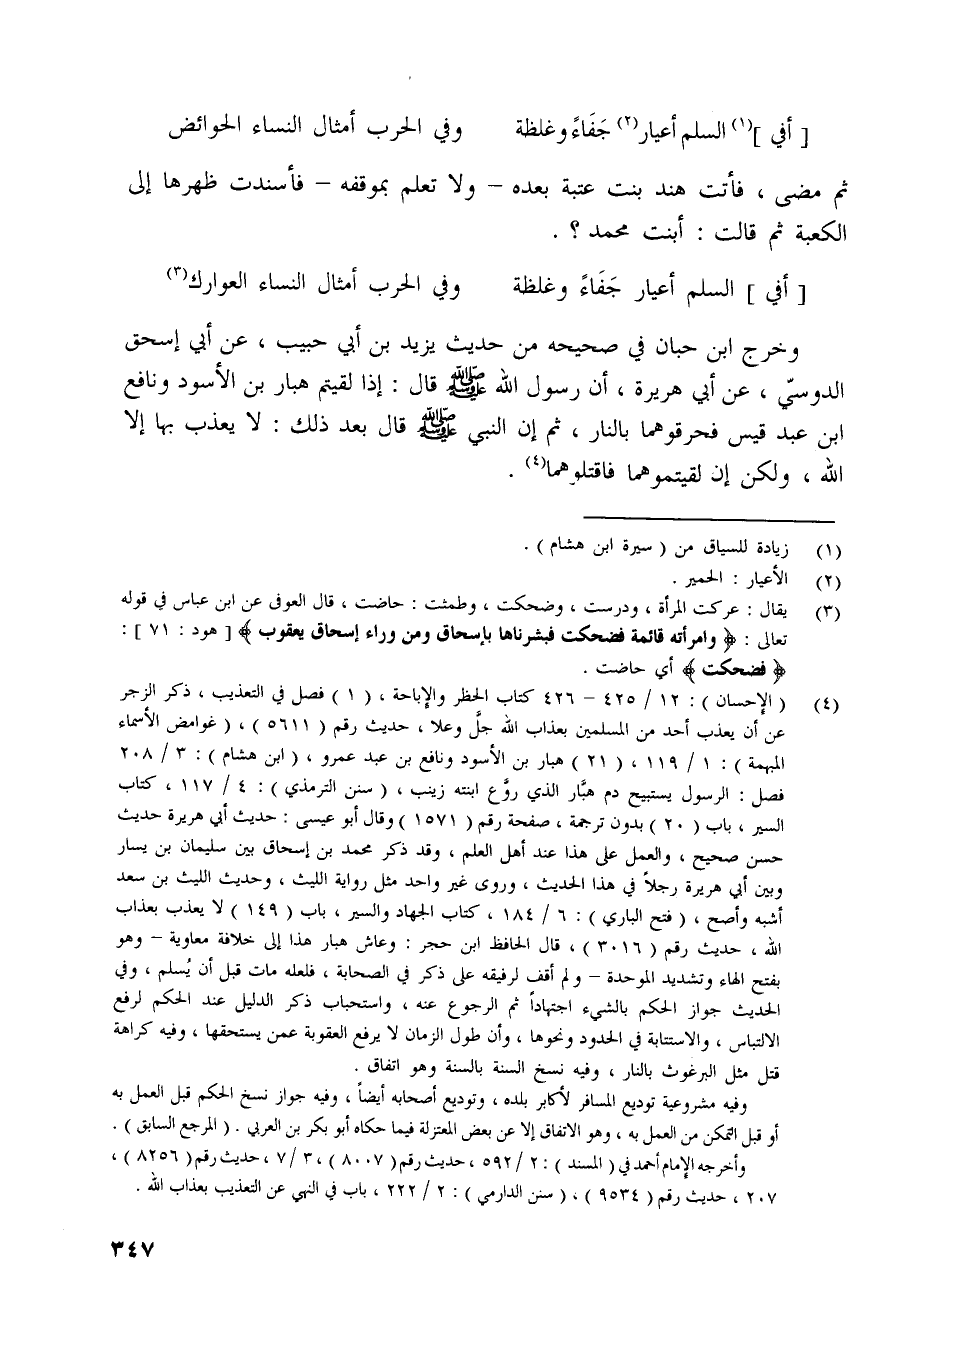 [ أفي ](١) السلم أعيار(٢) جَفَاءً وغلظة وفي الحرب أمثال النساء الحوائض
ثم مضى ، فأتت هند بنت عتبة بعده – ولا تعلم بموقفه – فأسندت ظهرها إلى
الكعبة ثم قالت : أبنت محمد ؟ .
[ أفي ] السلم أعيار جَفَاءً وغلظة وفي الحرب أمثال النساء العوارك(٣)
وخرج ابن حبان في صحيحه من حديث يزيد بن أبي حبيب ، عن أبي إسحق
الدوسيّ ، عن أبي هريرة ، أن رسول الله ﷺ قال : إذا لقيتم هبار بن الأسود ونافع
ابن عبد قيس فحرقوهما بالنار ، ثم إن النبي ﷺ قال بعد ذلك : لا يعذب بها إلا
الله ، ولكن إن لقيتموهما فاقتلوهما(٤) .
(١) زيادة للسياق من ( سيرة ابن هشام ) .
(٢) الأعيار : الحمير .
(٣) يقال : عركت المرأة ، ودرست ، وضحكت ، وطمثت : حاضت ، قال العوفى عن ابن عباس في قوله
تعالى : ﴿ وامرأته قائمة فضحكت فبشرناها بإسحاق ومن وراء إسحاق يعقوب ﴾ [ هود : ٧١ ] :
﴿ فضحكت ﴾ أي حاضت .
(٤) ( الإحسان ) : ١٢ / ٤٢٥ – ٤٢٦ كتاب الحظر والإباحة ، ( ١ ) فصل في التعذيب ، ذكر الزجر
عن أن يعذب أحد من المسلمين بعذاب الله جلَّ وعلا ، حديث رقم ( ٥٦١١ ) ، ( غوامض الأسماء
المبهمة ) : ١ / ١١٩ ، ( ٢١ ) هبار بن الأسود ونافع بن عبد عمرو ، ( ابن هشام ) : ٣ / ٢٠٨
فصل : الرسول يستبيح دم هبَّار الذي روَّع ابنته زينب ، ( سنن الترمذي ) : ٤ / ١١٧ ، كتاب
السير ، باب ( ٢٠ ) بدون ترجمة ، صفحة رقم ( ١٥٧١ ) وقال أبو عيسى : حديث أبي هريرة حديث
حسن صحيح ، والعمل على هذا عند أهل العلم ، وقد ذكر محمد بن إسحاق بين سليمان بن يسار
وبين أبي هريرة رجلاً في هذا الحديث ، وروى غير واحد مثل رواية الليث ، وحديث الليث بن سعد
أشبه وأصح ، ( فتح الباري ) : ٦ / ١٨٤ ، كتاب الجهاد والسير ، باب ( ١٤٩ ) لا يعذب بعذاب
الله ، حديث رقم ( ٣٠١٦ ) ، قال الحافظ ابن حجر : وعاش هبار هذا إلى خلافة معاوية – وهو
بفتح الهاء وتشديد الموحدة – ولم أقف لرفيقه على ذكر في الصحابة ، فلعله مات قبل أن يُسلم ، وفي
الحديث جواز الحكم بالشيء اجتهاداً ثم الرجوع عنه ، واستحباب ذكر الدليل عند الحكم لرفع
الالتباس ، والاستتابة في الحدود ونحوها ، وأن طول الزمان لا يرفع العقوبة عمن يستحقها ، وفيه كراهة
قتل مثل البرغوث بالنار ، وفيه نسخ السنة بالسنة وهو اتفاق .
وفيه مشروعية توديع المسافر لأكابر بلده ، وتوديع أصحابه أيضاً ، وفيه جواز نسخ الحكم قبل العمل به
أو قبل التمكن من العمل به ، وهو الاتفاق إلا عن بعض المعتزلة فيما حكاه أبو بكر بن العربي . ( المرجع السابق ) .
وأخرجه الإمام أحمد في ( المسند ) : ٢ / ٥٩٢ ، حديث رقم ( ٨٠٠٧ ) ، ٣ / ٧ ، حديث رقم ( ٨٢٥٦ ) ،
٢٠٧ ، حديث رقم ( ٩٥٣٤ ) ، ( سنن الدارمي ) : ٢ / ٢٢٢ ، باب في النهي عن التعذيب بعذاب الله .
٣٤٧